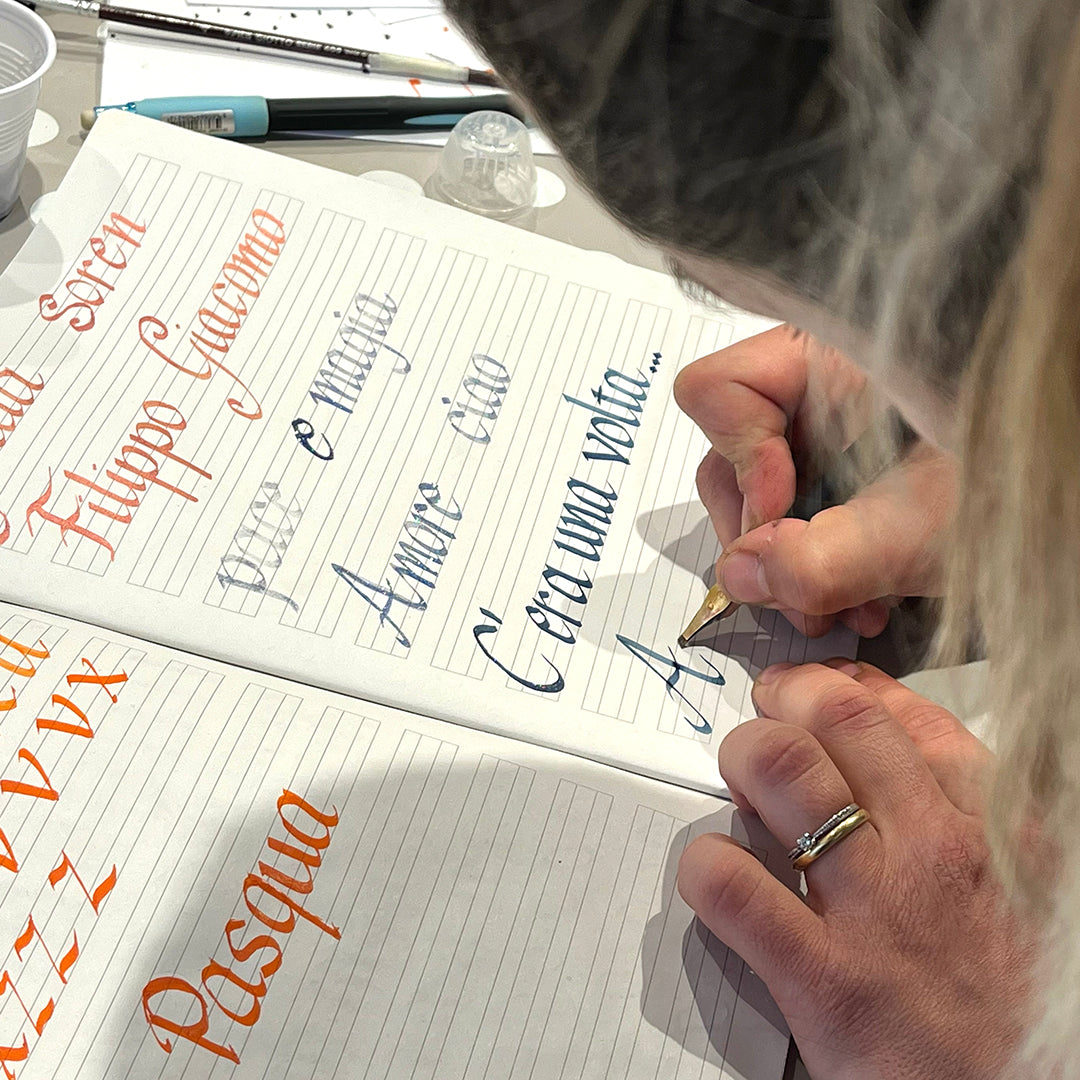 Soren
Filippo Giacomo
pace e magia
Amore ciao
C'era una volta...
A
V V V X
Z Z
Pasqua